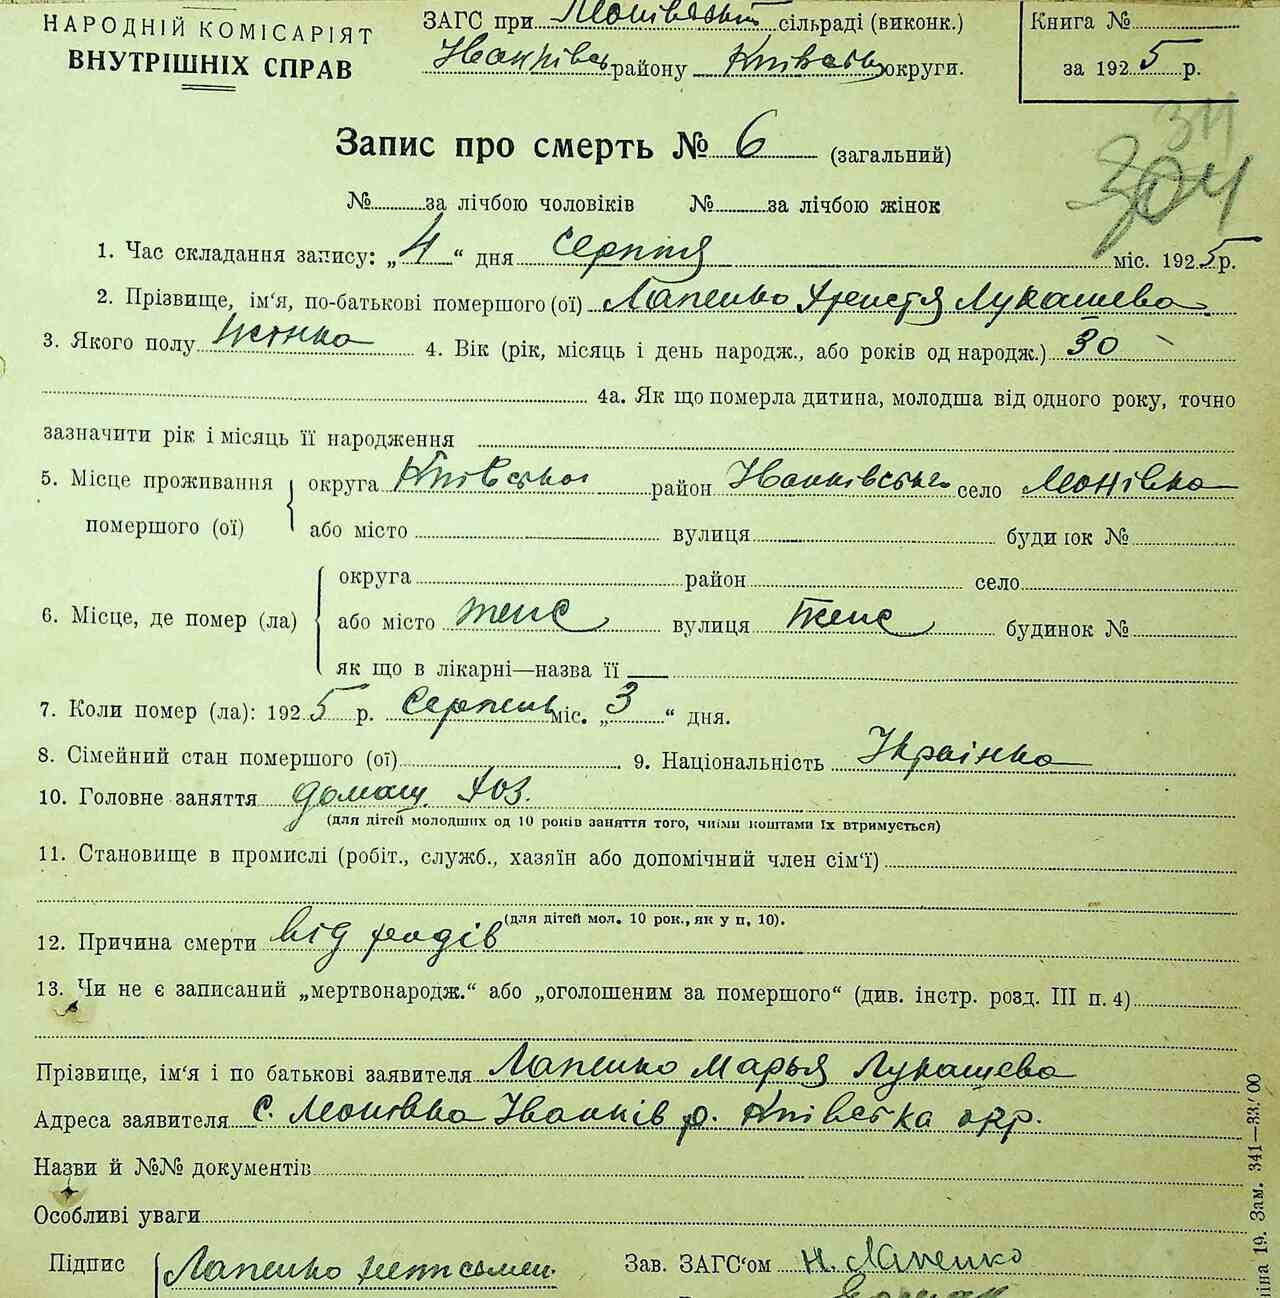 НАРОДНІЙ КОМІСАРІЯТ
ВНУТРІШНІХ СПРАВ
ЗАГС при сільраді (виконк.)
Іванківськ району Київськ округи.
Книга №
за 1925 р.
Запис про смерть № 6 (загальний)
311
304
№ за лічбою чоловіків № за лічбою жінок
1. Час складання запису: „4“ дня серпня міс. 1925 р.
2. Прізвище, ім‘я, по-батькові помершого (ої) Лапенко Христя Лукашева
3. Якого полу жінка 4. Вік (рік, місяць і день народж., або років од народж.) 30
4а. Як що померла дитина, молодша від одного року, точно
зазначити рік і місяць її народження
5. Місце проживання помершого (ої) округа Київська район Іванківське село
або місто вулиця будинок №
6. Місце, де помер (ла) округа район село
або місто теж вулиця теж будинок №
як що в лікарні—назва її —
7. Коли помер (ла): 1925 р. Серпень міс. „3“ дня.
8. Сімейний стан помершого (ої) 9. Національність Українка
10. Головне заняття домаш. хоз.
(для дітей молодших од 10 років заняття того, чиїми коштами їх втримується)
11. Становище в промислі (робіт., служб., хазяїн або допомічний член сім‘ї)
(для дітей мол. 10 рок., як у п. 10).
12. Причина смерти від родів
13. Чи не є записаний „мертвонародж.“ або „оголошеним за помершого“ (див. інстр. розд. III п. 4)
Прізвище, ім‘я і по батькові заявителя Лапенко Марья Лукашева
Адреса заявителя с. Іванків р. Київська окр.
Назви й №№ документів
Особливі уваги
Підпис Лапенко неписьмен.
Зав. ЗАГС‘ом Н. Лапенко
19. Зам. 341—33.‘00